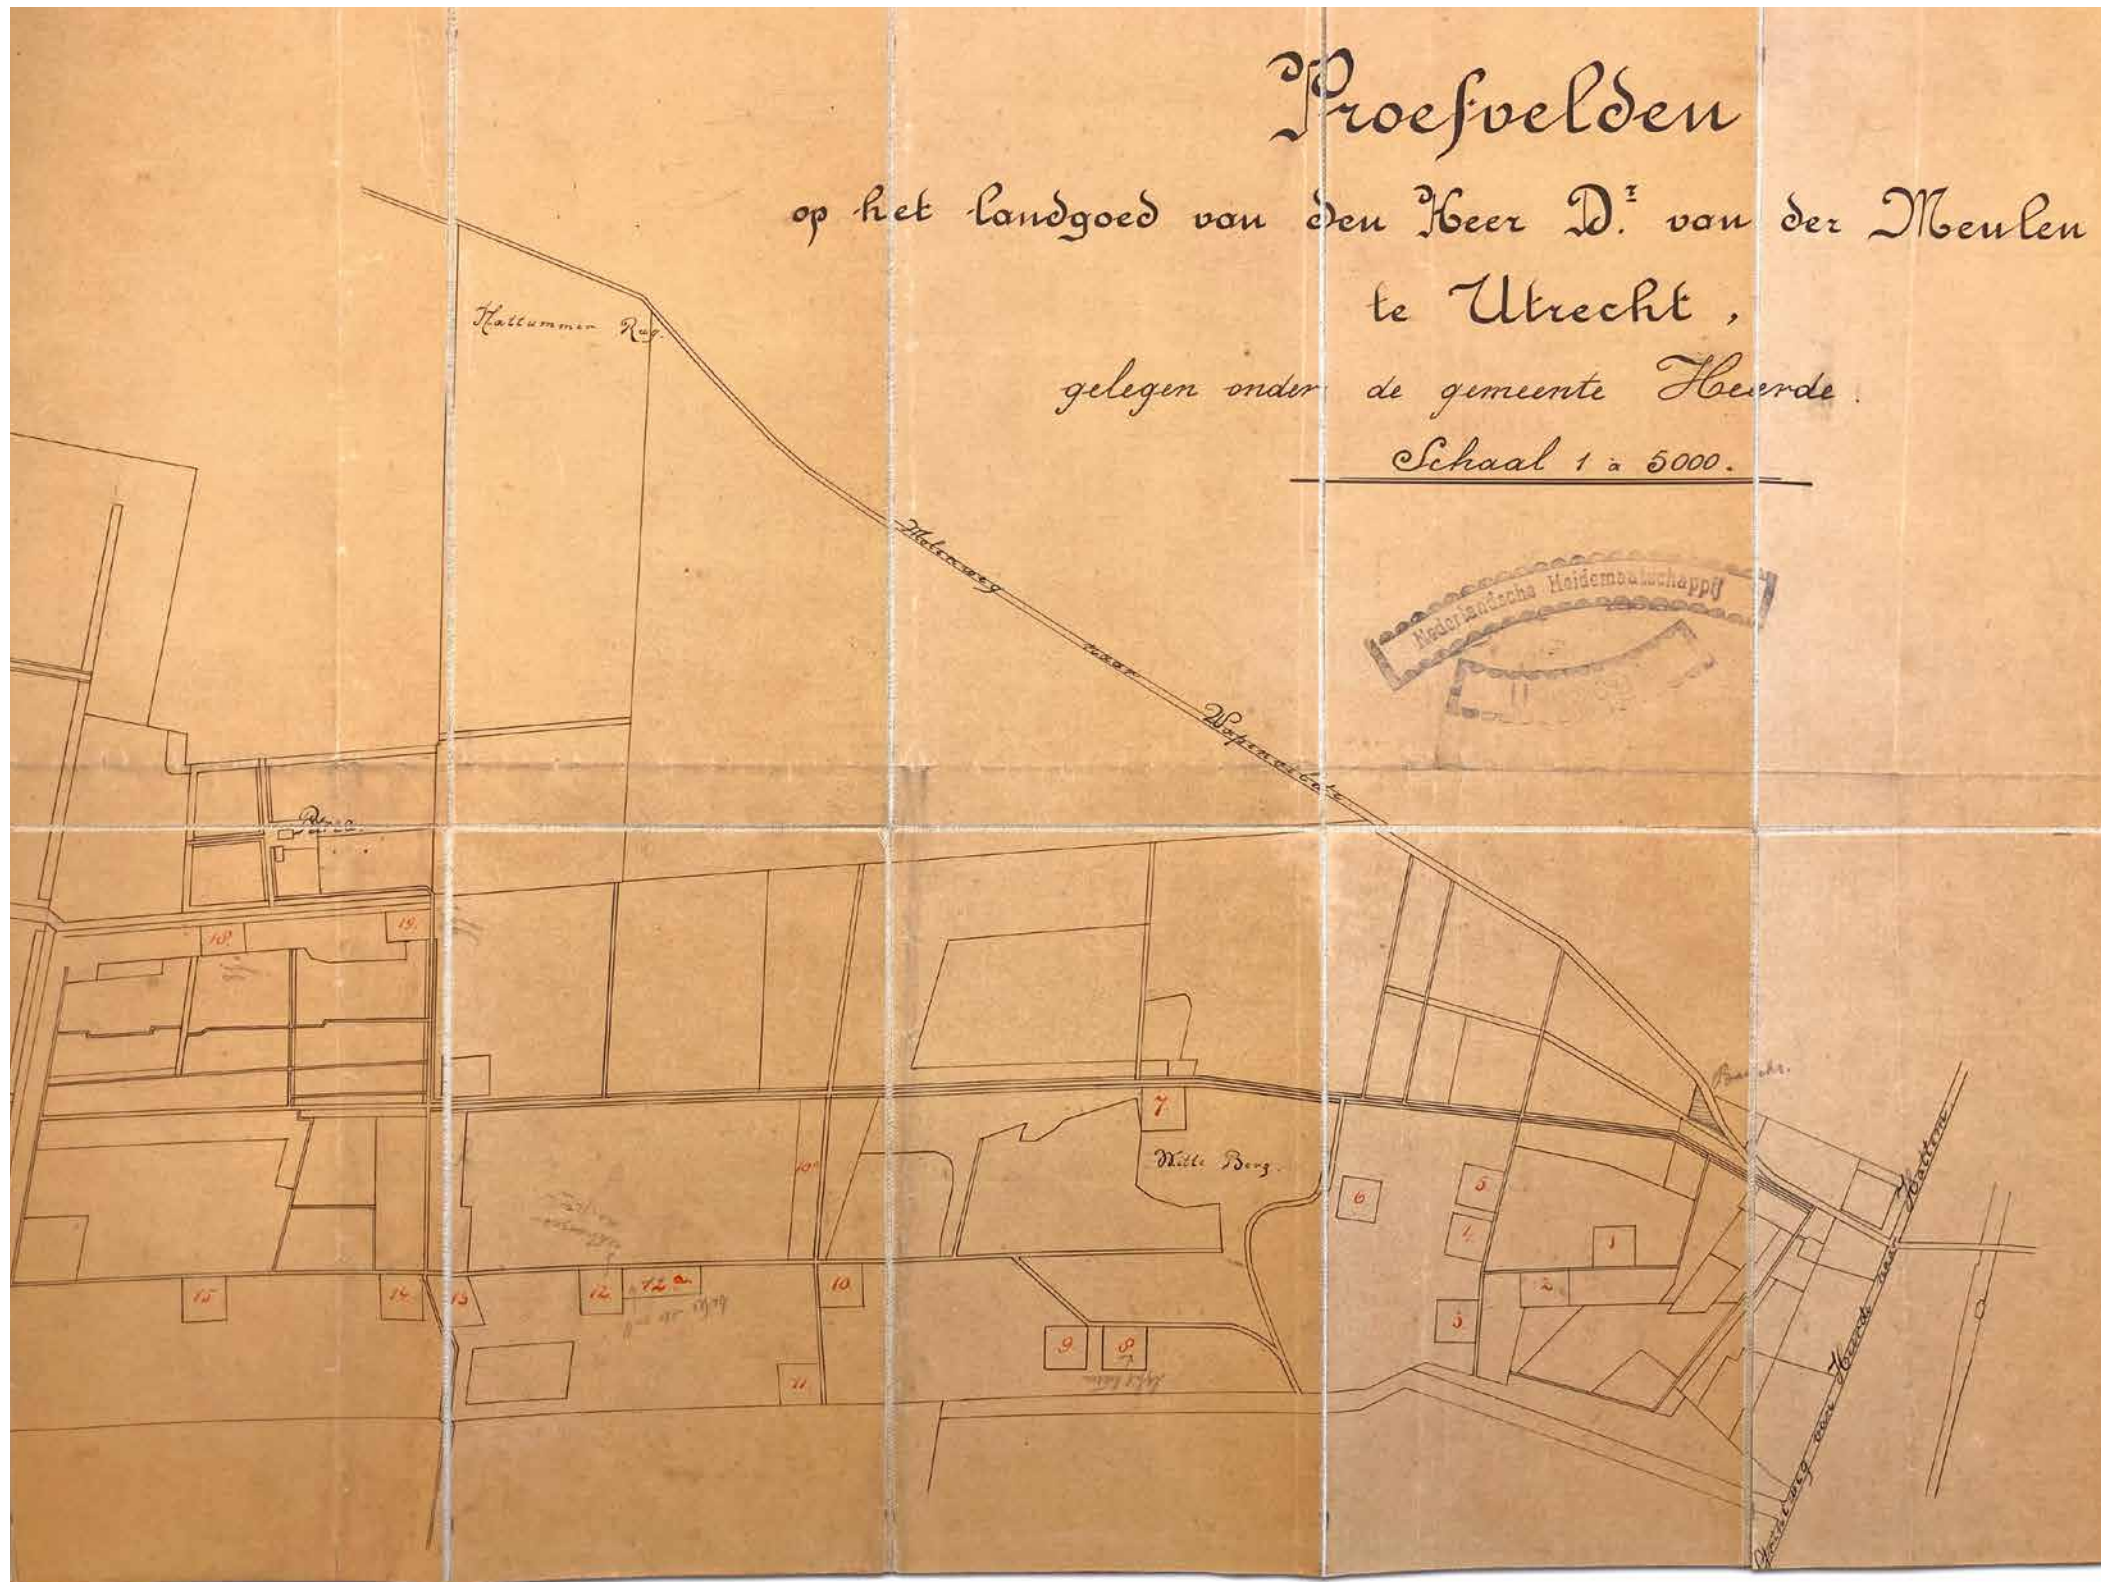 Proefvelden
op het landgoed van den Heer Dr. van der Meulen
te Utrecht,
gelegen onder de gemeente Heerde.
Schaal 1 à 5000.
Nederlandsche Heidemaatschappij
Hattummer Rug.
Molenweg naar Wapenvelde
18.
19.
7
Witte Berg.
10a
6
5
4.
1
2
3
15
14
13
12
12a
10.
11
9
8
Grintweg van Heerde naar Hattem